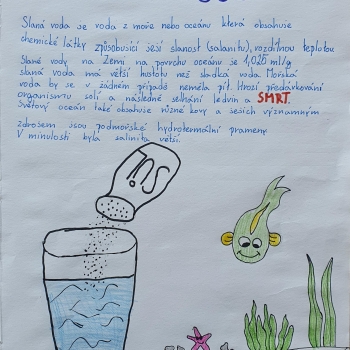 Slaná voda je voda z moře nebo oceánu která obsahuje
chemické látky způsobující její slanost (salanitu), rozdílnou teplotou
Slané vody na Zemi na povrchu oceánu je 1,025 ml/g
slaná voda má větší hustotu než sladká voda. Mořská
voda by se v žádném případě neměla pít. Hrozí předávkování
organismu solí a následné selhání ledvin a SMRT.
Světový oceán také obsahuje různé kovy a jejich významným
zdrojem jsou podmořské hydrotermální prameny.
V minulosti byla salinita větší.
SŮL